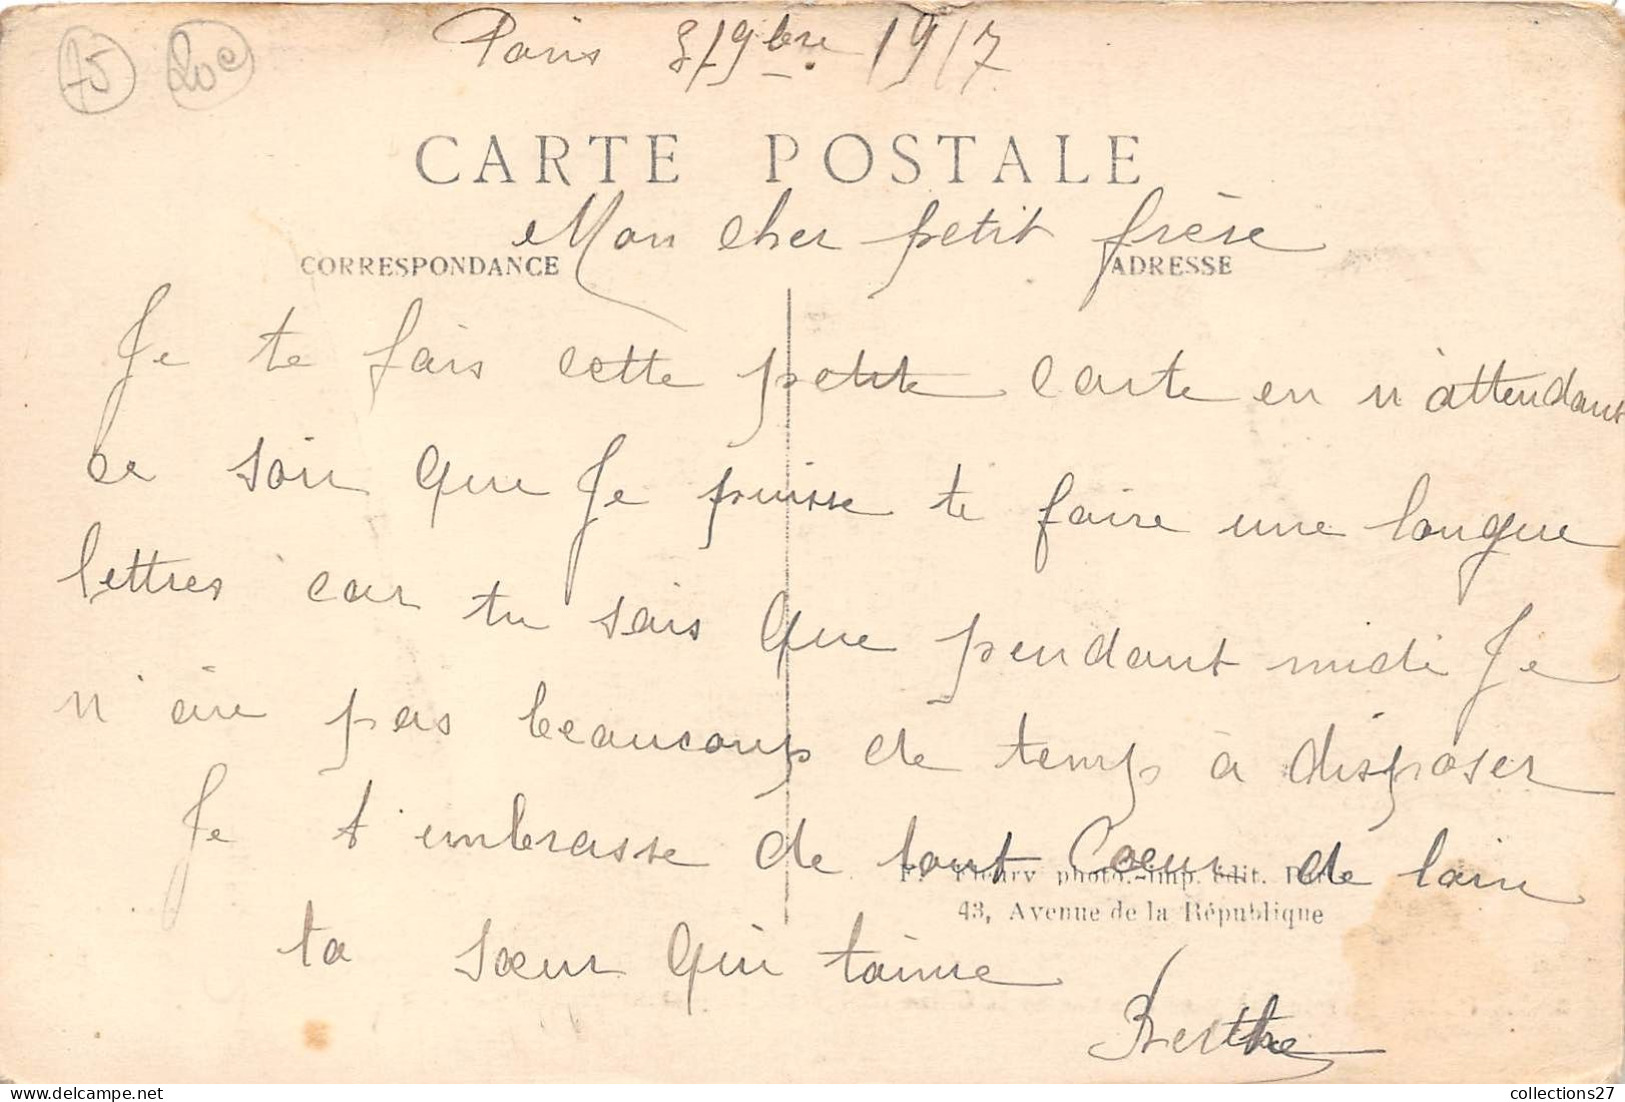 75 20e
Paris 8/9bre 1917
CARTE POSTALE
Mon cher petit frère
CORRESPONDANCE ADRESSE
Je te fais cette petite carte en n'attendant
ce soir que Je puisse te faire une longue
lettres car tu sais que pendant midi Je
n'aie pas beaucoup de temp à disposer
Je t'embrasse de tout Coeur de loin
F. Fleury phot.-imp. édit.
43, Avenue de la République
ta sœur qui taime
Berthe
collections27